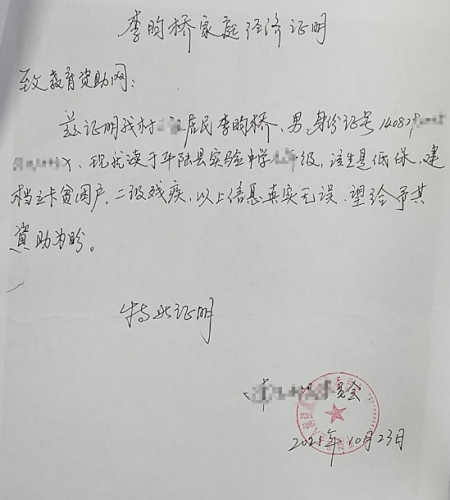 李昀桥家庭经济证明
致教育资助网：
兹证明我村 居民李昀桥，男，身份证号1408
X，现就读于平陆县实验中学 级，该生是低保，建
档立卡贫困户，二级残疾，以上信息真实无误，望给予其
资助为盼。
特此证明
委会
2025年10月23日